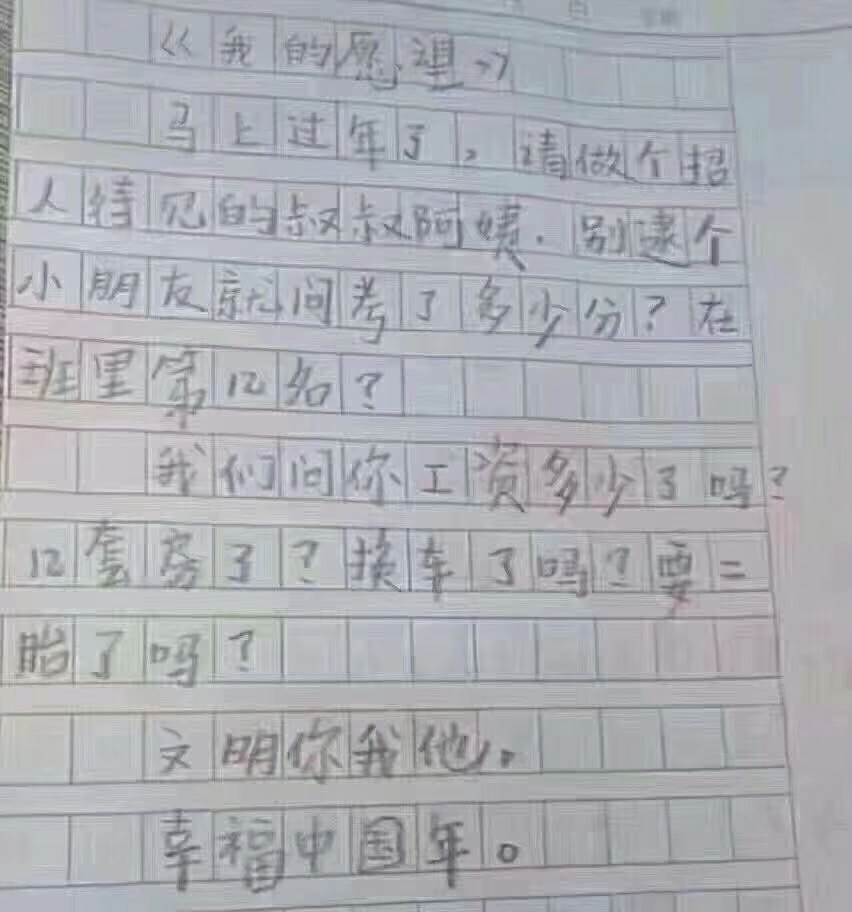 《我的愿望》
马上过年了，请做个招
人待见的叔叔阿姨.别逮个
小朋友就问考了多少分？在
班里第几名？
我们问你工资多少了吗？
几套房了？换车了吗？要二
胎了吗？
文明你我他。
幸福中国年。